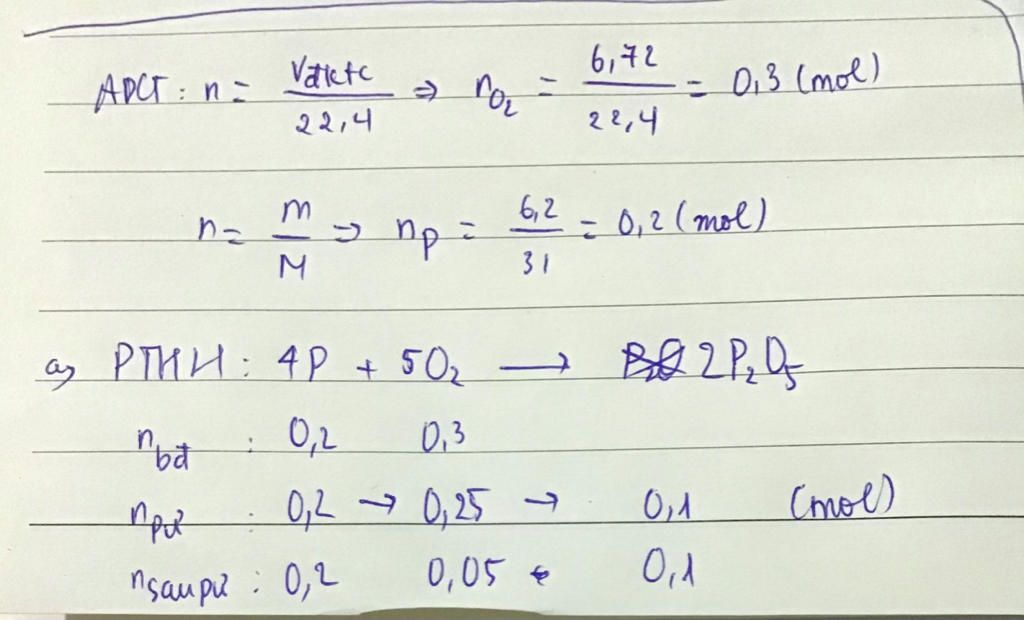 ADCT: n = Vđktc / 22,4 => nO₂ = 6,72 / 22,4 = 0,3 (mol)
n = m / M => nP = 6,2 / 31 = 0,2 (mol)
a, PTHH: 4P + 5O₂ → 2P₂O₅
nbđ : 0,2 0,3
npứ : 0,2 → 0,25 → 0,1 (mol)
nsaupứ : 0,2 0,05 0,1